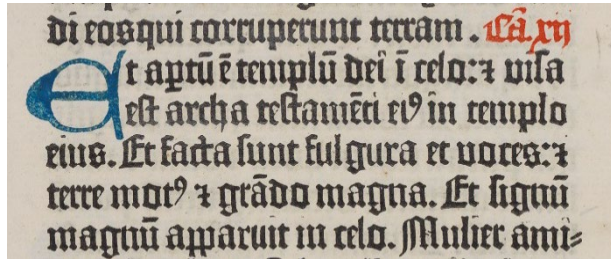 di eosqui corruperunt terram . Ca᷃ xii
Et ap̲tū ē templū dei ī celo: ⁊ visa
est archa testamēti eiꝰ in templo
eius. Et facta sunt fulgura et voces: ⁊
terre motꝰ ⁊ grādo magna. Et signū
magnū apparuit in celo. Mulier ami⸗